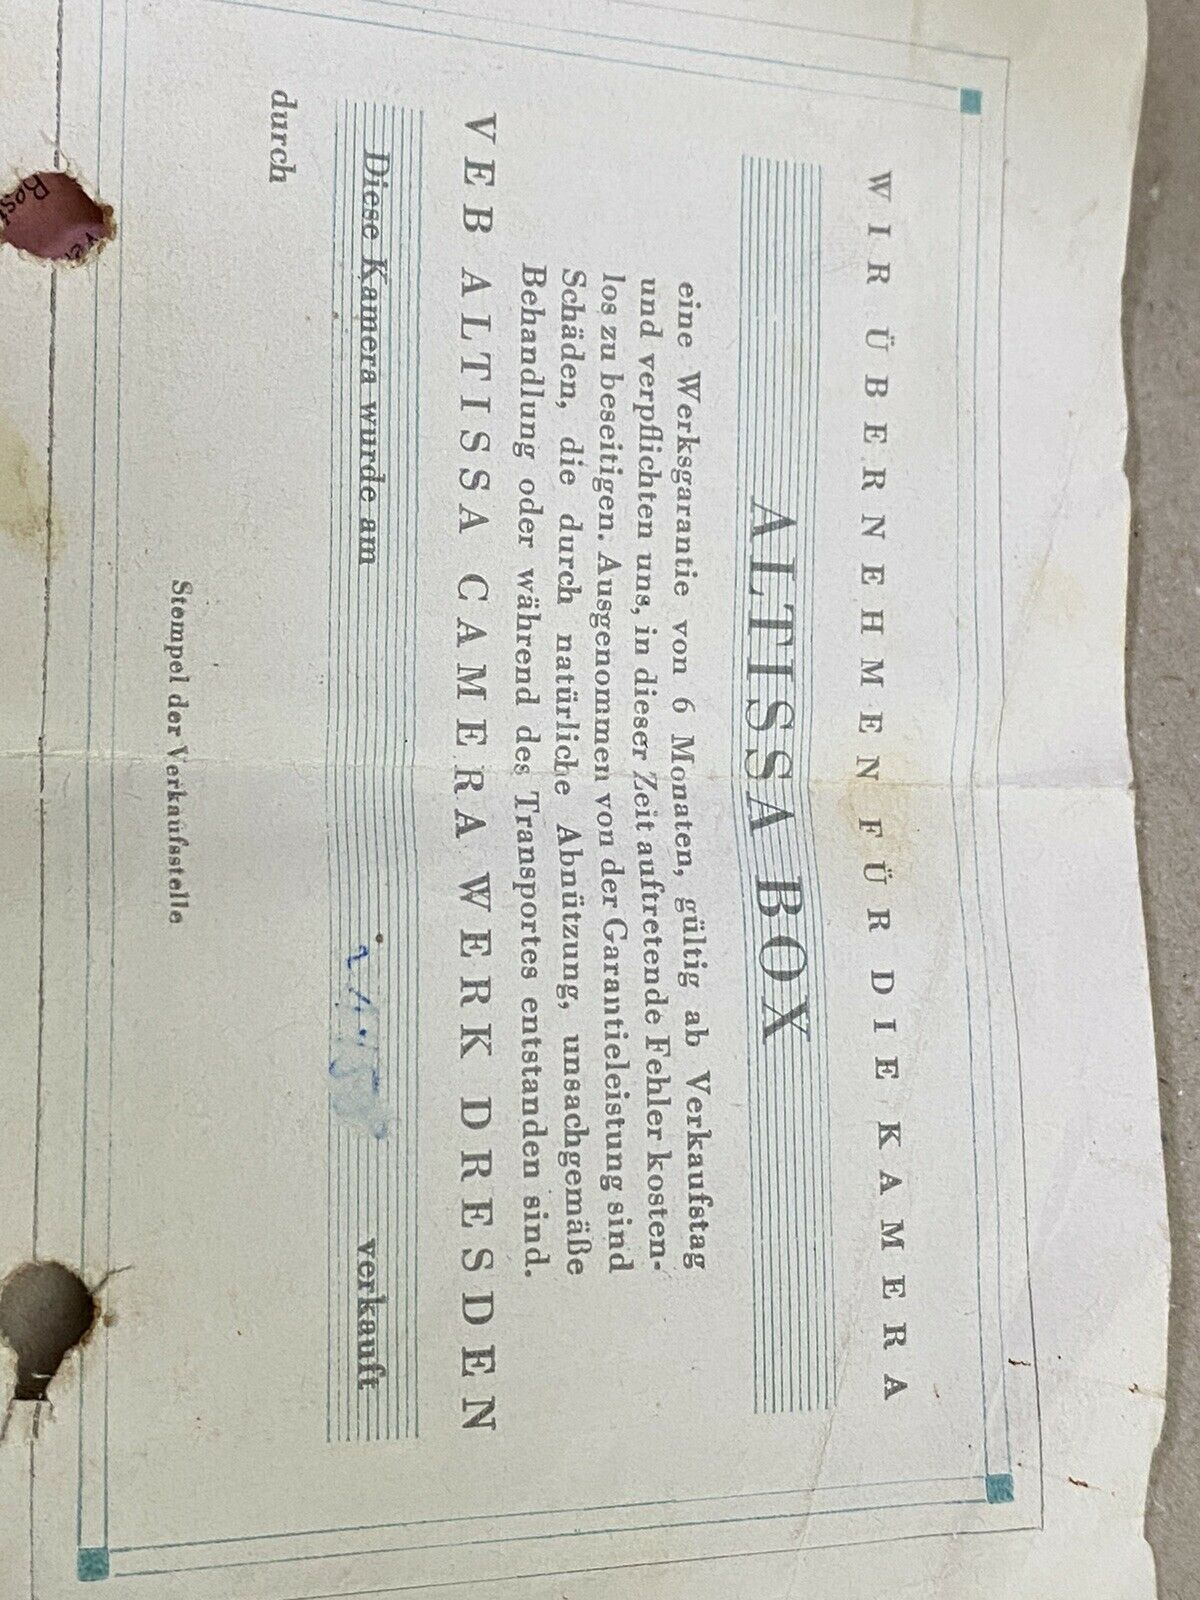 WIR ÜBERNEHMEN FÜR DIE KAMERA
ALTISSA BOX
eine Werksgarantie von 6 Monaten, gültig ab Verkaufstag
und verpflichten uns, in dieser Zeit auftretende Fehler kosten-
los zu beseitigen. Ausgenommen von der Garantieleistung sind
Schäden, die durch natürliche Abnützung, unsachgemäße
Behandlung oder während des Transportes entstanden sind.
VEB ALTISSA CAMERA WERK DRESDEN
Diese Kamera wurde am verkauft
durch
Stempel der Verkaufsstelle